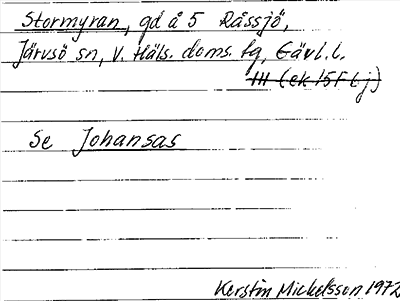 Stormyran, gd å 5 Råssjö,
Järvsö sn, V. Häls. doms. tg, Gävl. l.
III (ek 15F Lj)
Se Johansas
Kerstin Mickelsson 1972